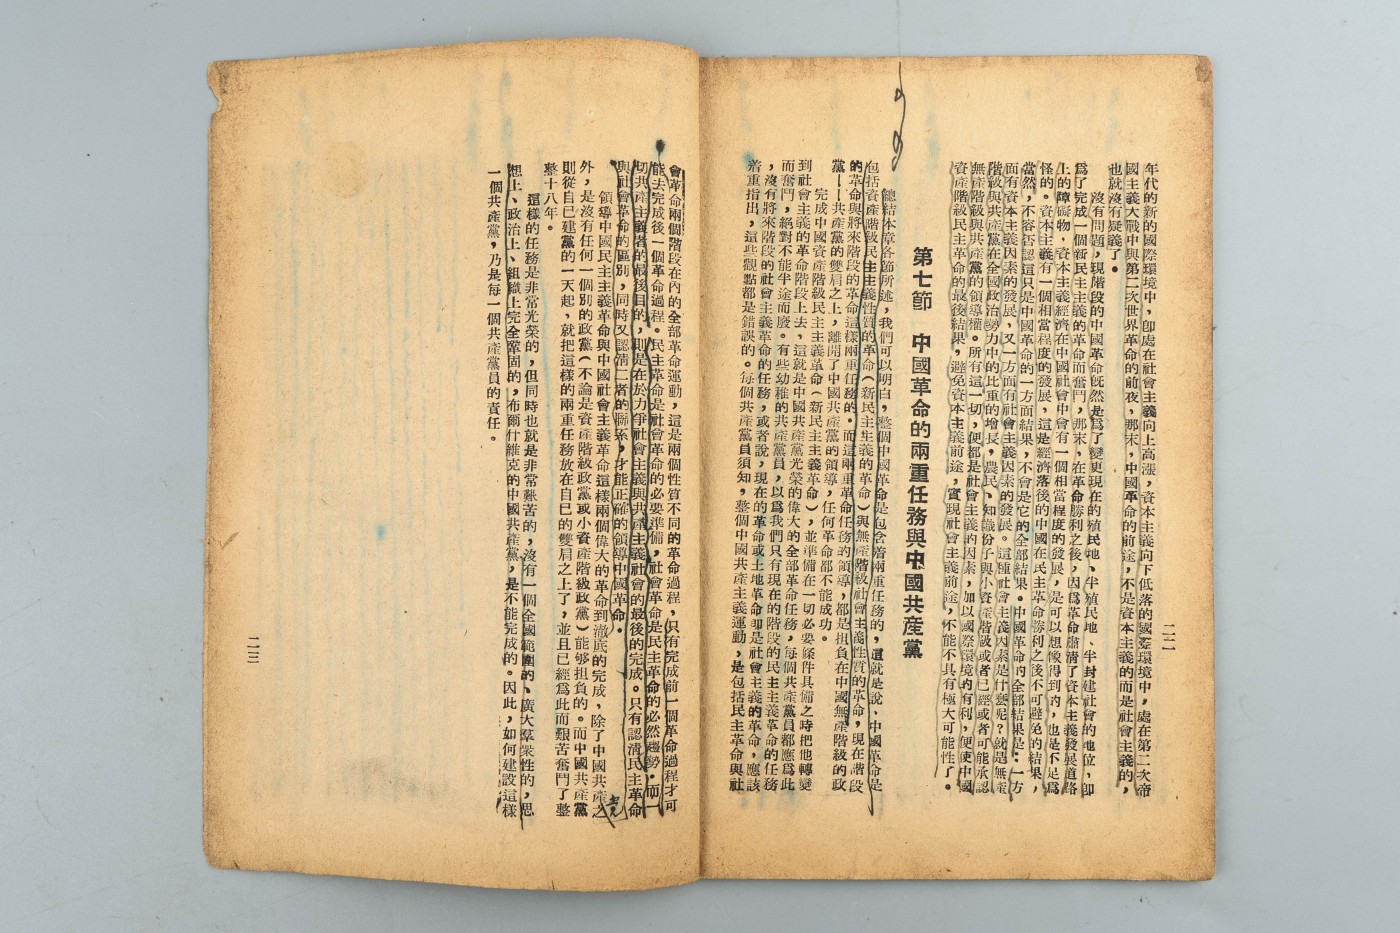 年代的新的國際環境中，卽處在社會主義向上高漲，資本主義向下低落的國際環境中，處在第二次帝
國主義大戰中與第二次世界革命的前夜，那末，中國革命的前途，不是資本主義的而是社會主義的，
也就沒有疑義了。
沒有問題，現階段的中國革命旣然是爲了變更現在的殖民地、半殖民地、半封建社會的地位，卽
爲了完成一個新民主主義的革命而奮鬥，那末，在革命勝利之後，因爲革命肅清了資本主義發展道路
上的障礙物，資本主義經濟在中國社會中會有一個相當程度的發展，是可以想像得到的，也是不足爲
怪的。資本主義有一個相當程度的發展，這是經濟落後的中國在民主革命勝利之後不可避免的結果，
當然，不容否認這只是中國革命的一方面結果，不會是它的全部結果。中國革命的全部結果是：一方
面有資本主義因素的發展，又一方面有社會主義因素的發展。這種社會主義因素是什麼呢？就是無產
階級與共產黨在全國政治勢力中的比重的增長，農民、知識份子與小資產階級或者已經或者可能承認
無產階級與共產黨的領導權。所有這一切，便都是社會主義的因素，加以國際環境的有利，便使中國
資產階級民主革命的最後結果，避免資本主義前途，實現社會主義前途，不能不具有極大可能性了。
第七節　中國革命的兩重任務與中國共產黨
總結本章各節所述，我們可以明白，整個中國革命是包含着兩重任務的，這就是說、中國革命是
包括資產階級民主主義性質的革命（新民主主義的革命）與無產階級社會主義性質的革命，現在階段
的革命與將來階段的革命這樣兩重任務的。而這兩重革命任務的領導，都是担負在中國無產階級的政
黨——共產黨的雙肩之上，離開了中國共產黨的領導，任何革命都不能成功。
完成中國資產階級民主主義革命（新民主主義革命），並準備在一切必要條件具備之時把他轉變
到社會主義的革命階段上去，這就是中國共產黨光榮的偉大的全部革命任務，每個共產黨員都應爲此
而奮鬥，絕對不能半途而廢。有些幼稚的共產黨員，以爲我們只有現在的階段的民主主義革命的任務
，沒有將來階段的社會主義革命的任務，或者說，現在的革命或土地革命卽是社會主義的革命，應該
着重指出，這些觀點都是錯誤的。每個共產黨員須知，整個中國共產主義運動，是包括民主革命與社
二二
會革命兩個階段在內的全部革命運動，這是兩個性質不同的革命過程，只有完成前一個革命過程才可
能去完成後一個革命過程。民主革命是社會革命的必要準備，社會革命是民主革命的必然趨勢。而一
切共產主義者的最後目的，則是在於力爭社會主義與共產主義社會的最後的完成。只有認清民主革命
與社會革命的區別，同時又認清二者的聯系，才能正確的領導中國革命。
領導中國民主主義革命與中國社會主義革命這樣兩個偉大的革命到澈底的完成，除了中國共產之
黨
外，是沒有任何一個別的政黨（不論是資產階級政黨或小資產階級政黨）能够担負的。而中國共產黨
則從自己建黨的一天起，就把這樣的兩重任務放在自己的雙肩之上了，並且已經爲此而艱苦奮鬥了整
整十八年。
這樣的任務是非常光榮的，但同時也就是非常艱苦的，沒有一個全國範圍的、廣大羣衆性的，思
想上、政治上、組織上完全鞏固的，布爾什維克的中國共產黨，是不能完成的。因此，如何建設這樣
一個共產黨，乃是每一個共產黨員的責任。
二三